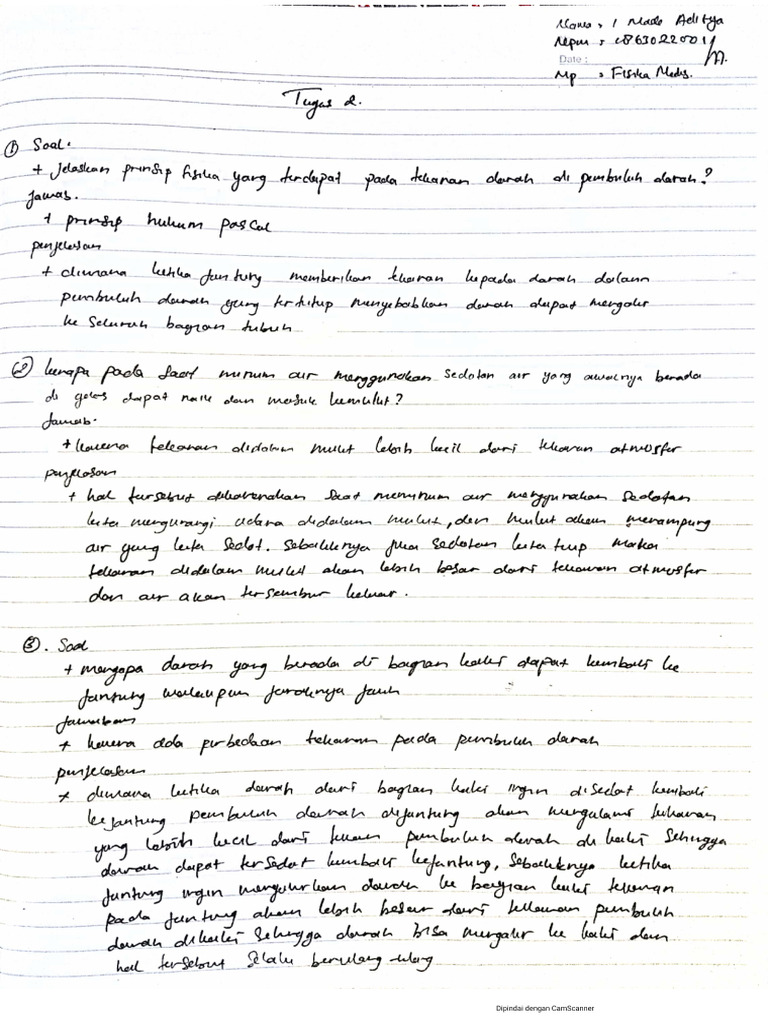 Nama : I Made Aditya
Npm : 0863022001
Date :
Mp : Fisika Medis.
Tugas 2.
① Soal.
+ Jelaskan prinsip fisika yang terdapat pada tekanan darah di pembuluh darah?
Jawab.
+ prinsip hukum pascal
penjelasan
+ dimana ketika jantung memberikan tekanan kepada darah dalam
pembuluh darah yang tertutup menyebabkan darah dapat mengalir
ke seluruh bagian tubuh
② kenapa pada saat minum air menggunakan sedotan air yang awalnya berada
di gelas dapat naik dan masuk kemulut?
Jawab.
+ karena tekanan didalam mulut lebih kecil dari tekanan atmosfer
penjelasan
+ hal tersebut dikarenakan saat meminum air menggunakan sedotan
kita mengurangi udara didalam mulut, dan mulut akan menampung
air yang kita sedot. Sebaliknya jika sedotan kita tiup maka
tekanan didalam mulut akan lebih besar dari tekanan atmosfer
dan air akan tersembur keluar.
③. Soal
+ mengapa darah yang berada di bagian kaki dapat kembali ke
jantung walaupun jaraknya jauh
Jawaban
+ karena ada perbedaan tekanan pada pembuluh darah
penjelasan
+ dimana ketika darah dari bagian kaki ingin disedot kembali
kejantung pembuluh darah dijantung akan mengalami tekanan
yang lebih kecil dari tekanan pembuluh darah di kaki sehingga
darah dapat tersedot kembali kejantung, sebaliknya ketika
jantung ingin mengalirkan darah ke bagian kaki tekanan
pada jantung akan lebih besar dari tekanan pembuluh
darah dikaki sehingga darah bisa mengalir ke kaki dan
hal tersebut selalu berulang-ulang
Dipindai dengan CamScanner